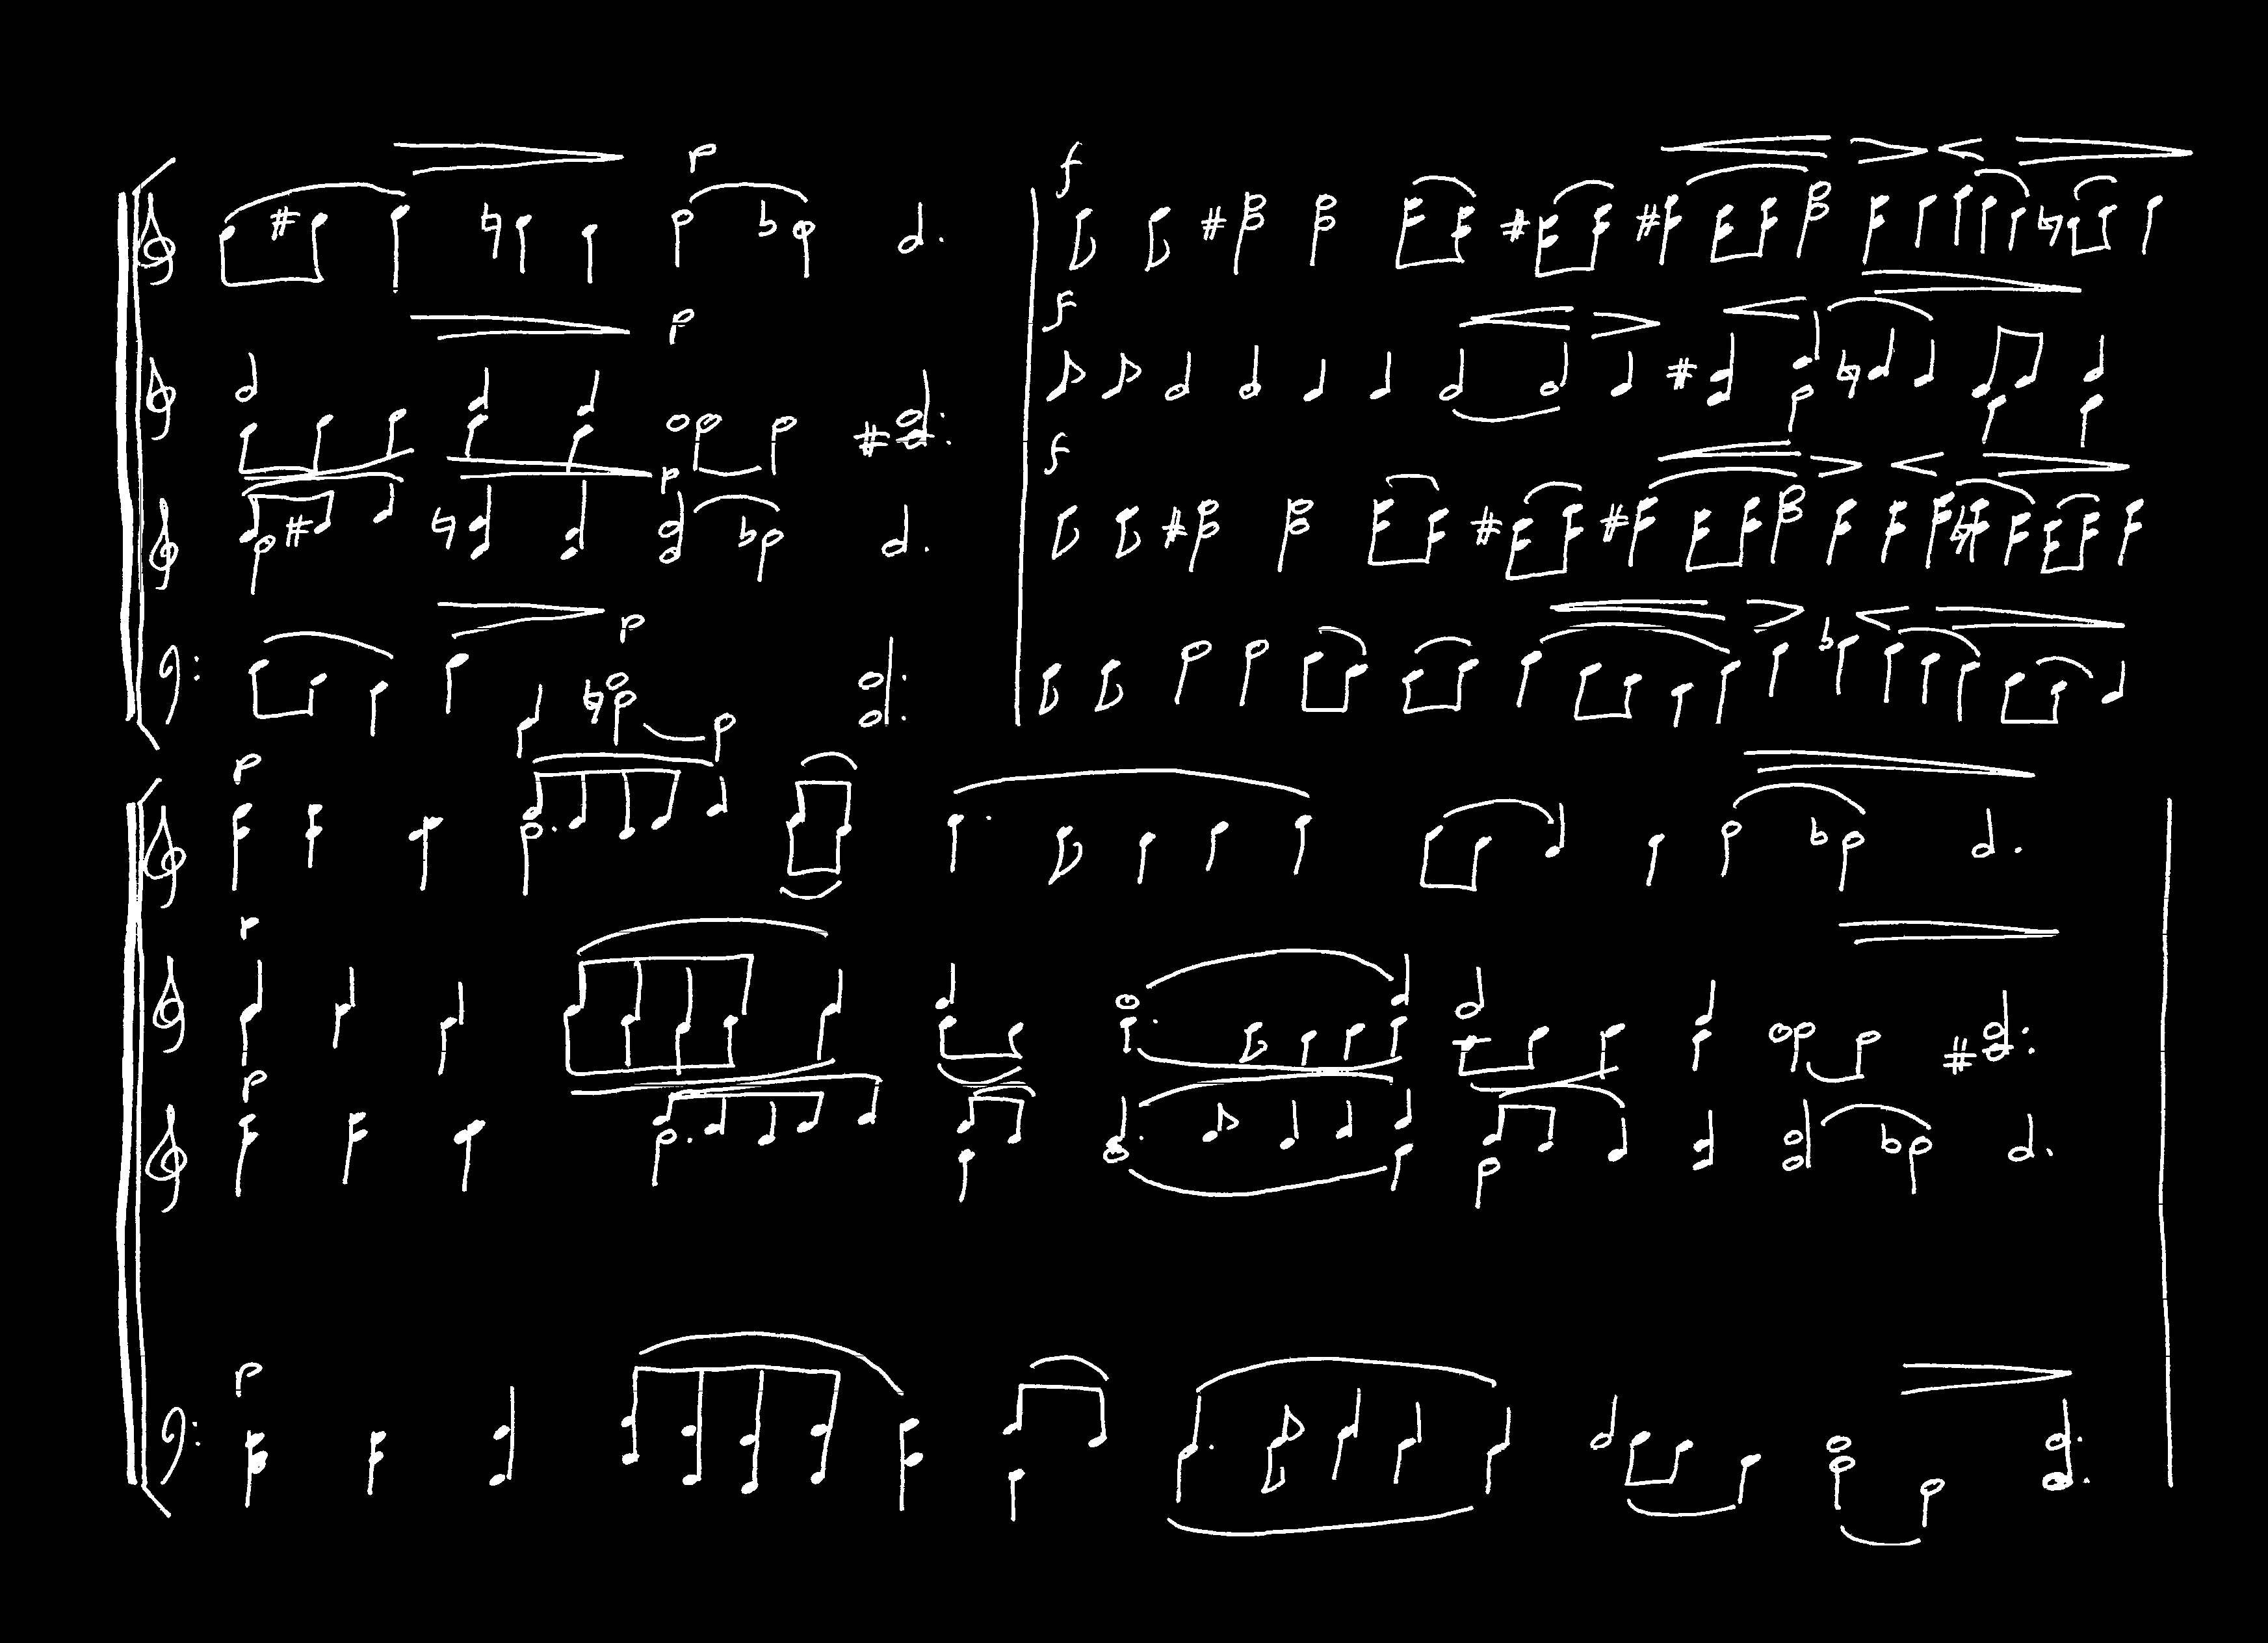 p f
p f
p f
p
p
p
p
p